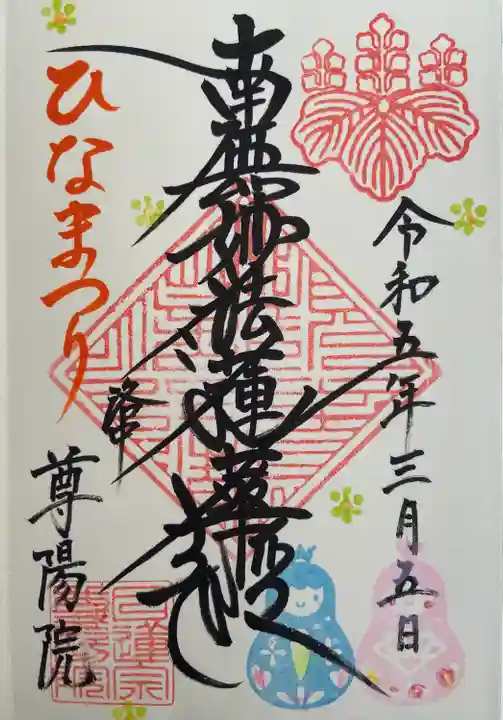 令和五年三月五日
南無妙法蓮華経
ひなまつり
尊陽院